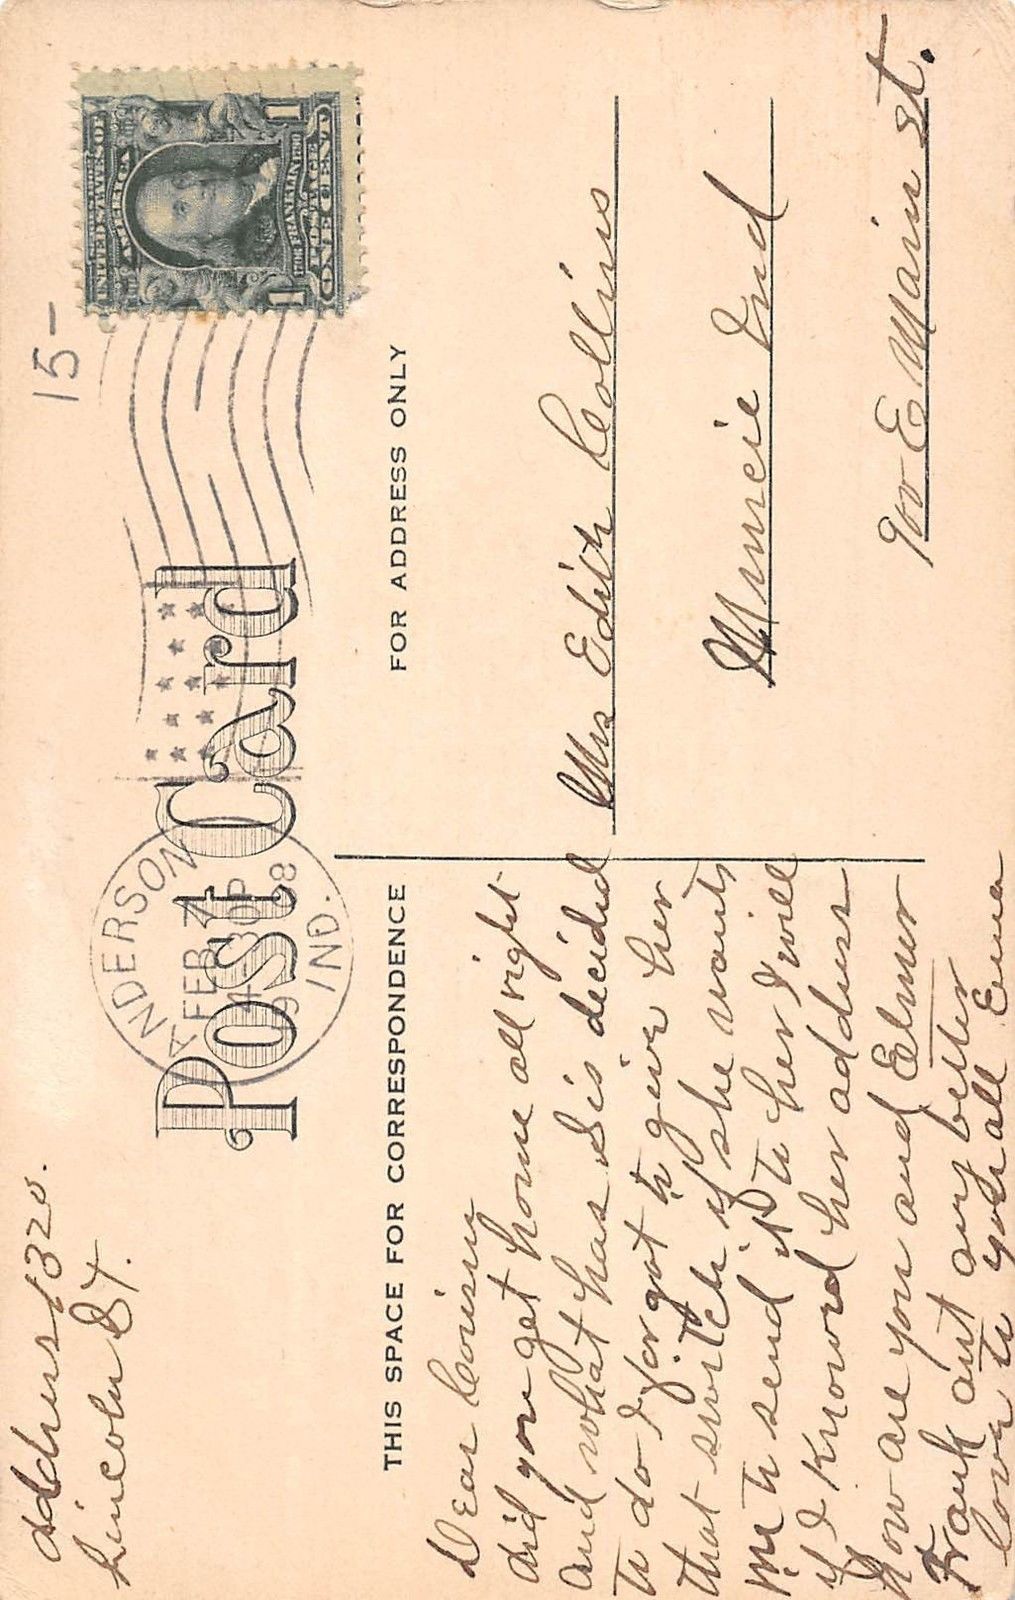 address 1320.
Lincoln St.
15-
UNITED STATES OF
AMERICA
1706 FRANKLIN 1790
POSTAGE
1 ONE CENT 1
ANDERSON
FEB 7
4 30P
1908
IND.
Post Card
THIS SPACE FOR CORRESPONDENCE
FOR ADDRESS ONLY
Dear Cousin
did you get home all right
and what has S is decided
to do I for got to give her
that switch if she wants
me to send it to her I will
if I knowed her address
how are you and Elmer
Frank aint any better
love to you all Erma
Mrs Edith Collins
Muncie Ind
900 E Main St.